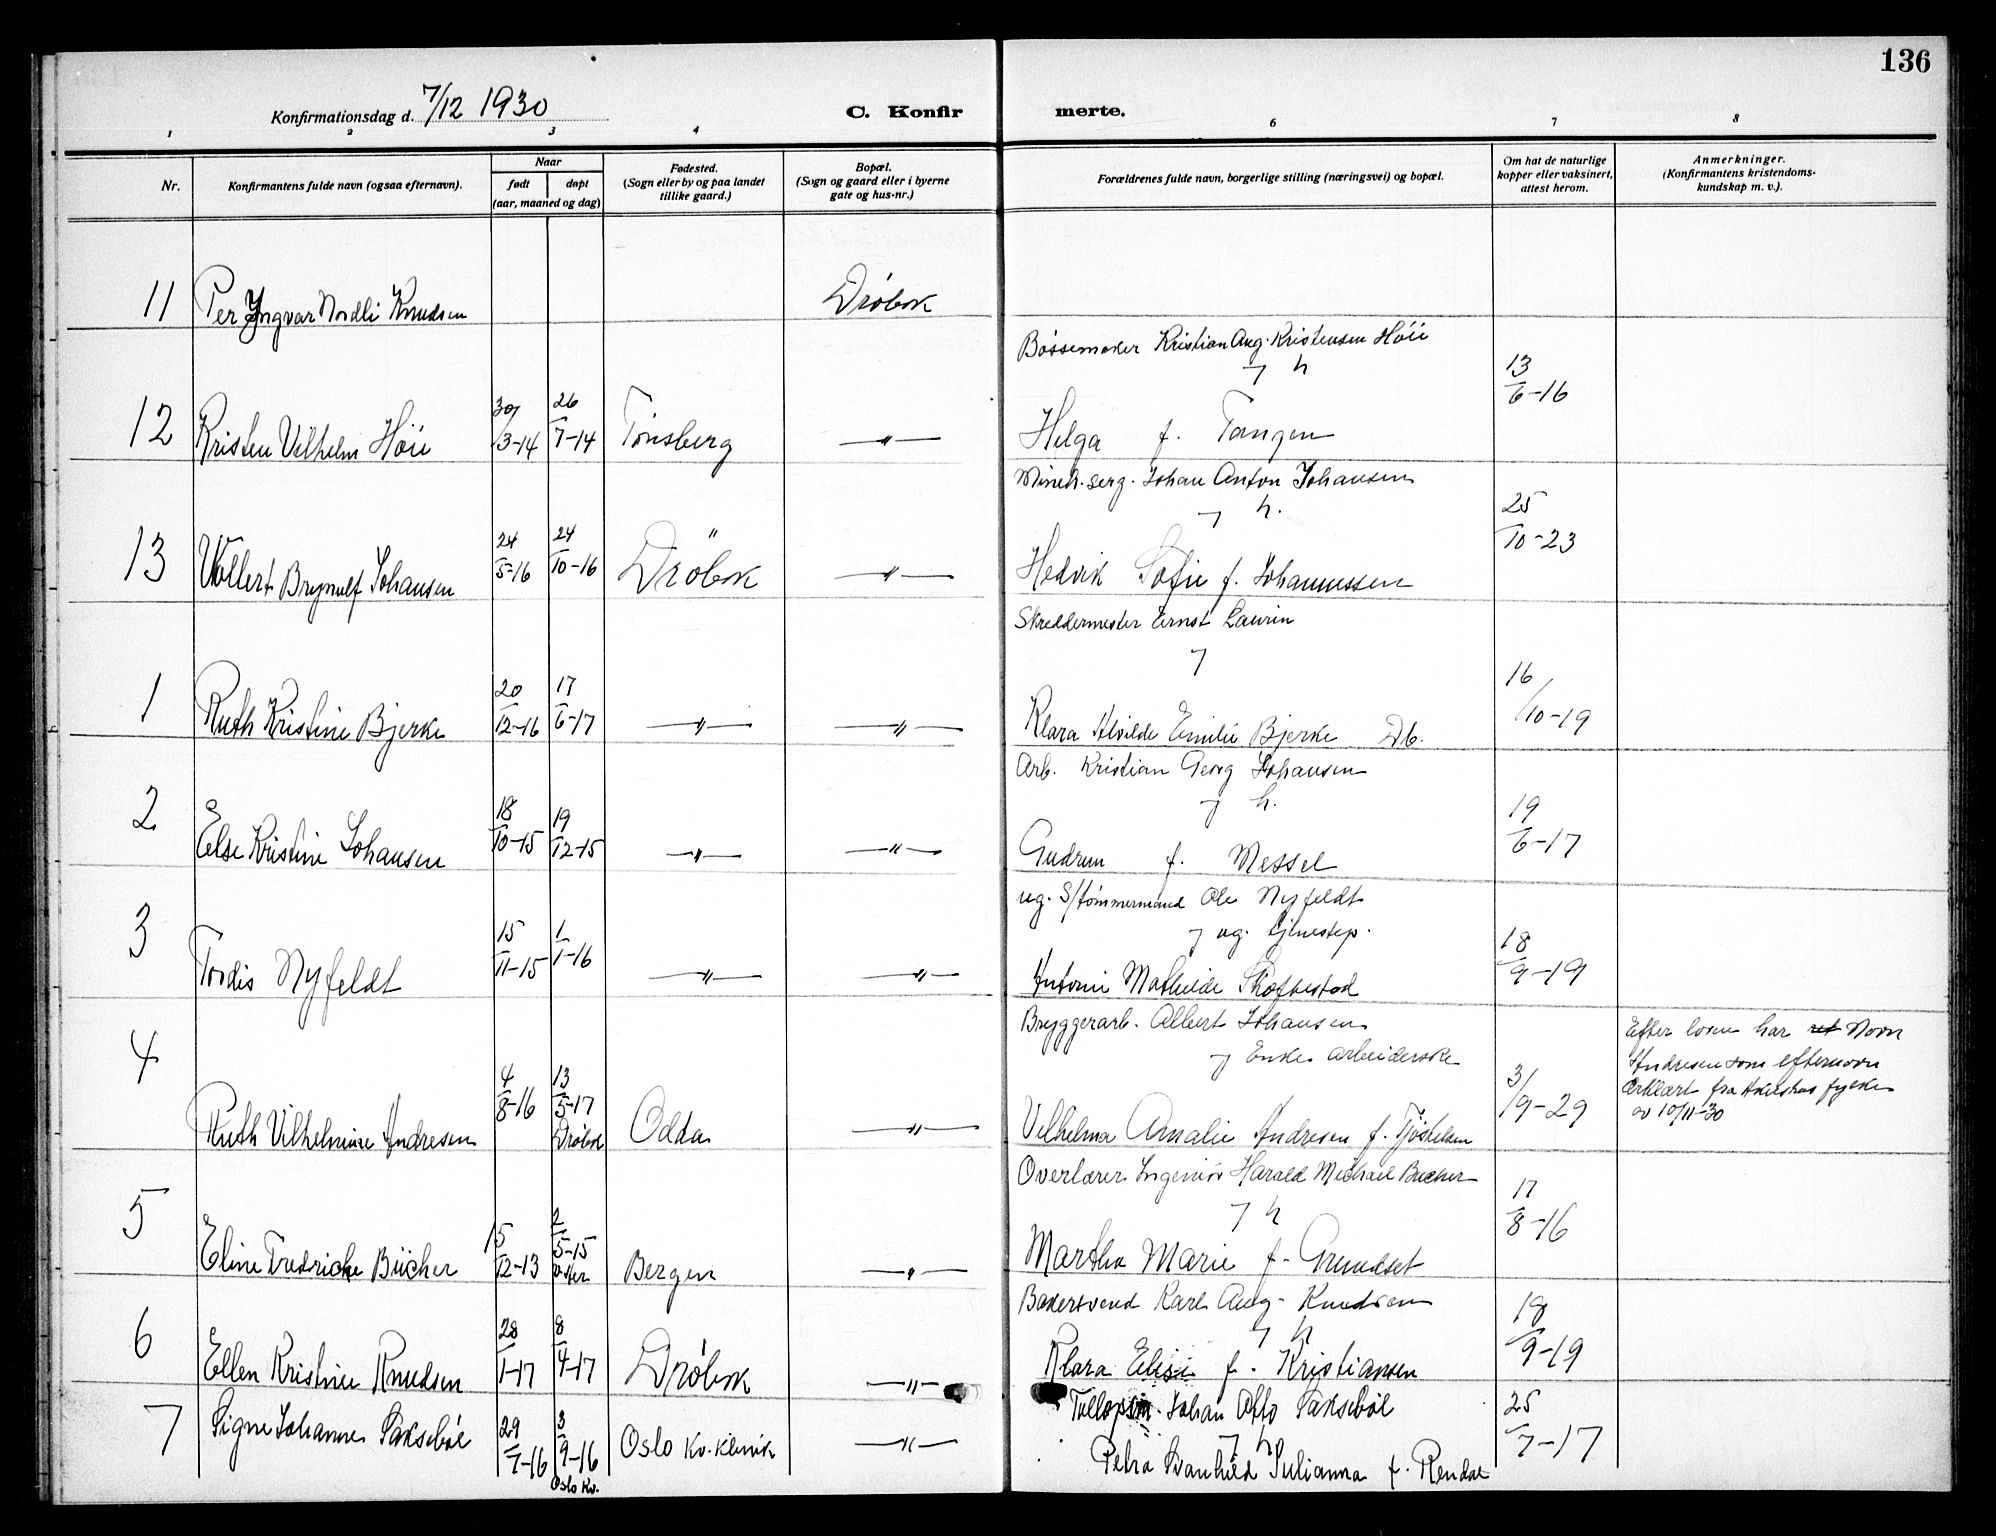 136
Konfirmationsdag d. 7/12 1930
C. Konfirmerte.
1 2 3 4 6 7 8
Nr.
Konfirmantens fulde navn (ogsaa efternavn).
Naar
født døpt
(aar, maaned og dag)
Fødested.
(Sogn eller by og paa landet
tillike gaard.)
Bopæl.
(Sogn og gaard eller i byerne
gate og hus-nr.)
Forældrenes fulde navn, borgerlige stilling (næringsvei) og bopæl.
Om hat de naturlige
kopper eller vaksinert,
attest herom.
Anmerkninger.
(Konfirmantens kristendoms-
kundskap m. v.).
11 Per Yngvar Nordli Knudsen Drøbak
Bøssemaker Kristian Aug. Kristensen Höii
7 h
12 Kristen Vilhelm Höii 30/3-14 26/7-14 Tönsberg —"— Helga f. Tangen 13/6-16
Minek. serg. Johan Anton Johansen
7 h.
13 Vollert Brynulf Johansen 24/5-16 24/10-16 Dröbak —"— Hedvik Sofie f. Johannessen 25/10-23
Skreddermester Ernst Laurin
7
1 Ruth Kristine Bjerke 20/12-16 17/6-17 —"— —"— Klara Alvilde Emilie Bjerke Db. 16/10-19
Arb. Kristian Georg Johansen
7 h.
2 Else Kristine Johansen 18/10-15 19/12-15 —"— —"— Gudrun f. Messel 19/6-17
ug. S/tømmermand Ole Nyfeldt
7 ug. tjenestep.
3 Tordis Nyfeldt 15/11-15 1/1-16 —"— —"— Antonie Mathilde 18/9-19
Bryggerarb. Albert Johansen
7 Enke arbeiderske
4 Ruth Vilhelmine Andresen 4/8-16 13/5-17 Drøbak Odda —"— Vilhelma Amalie Andresen f. 3/9-29
Efter loven har navn
Andresen som efternavn
Erklært fra Akershus fylke
av 10/11-30
Overlærer Ingeniør Harald Michael Bucher
7 h
5 Eline Fredricke Bücher 15/12-13 2/5-15 Bergen —"— Martha Marie f. Grundset 17/8-16
Bakersvend Karl Aug. Knudsen
7 h
6 Ellen Kristine Knudsen 28/1-17 8/4-17 Drøbak —"— Klara Elise f. Kristiansen 18/9-19
Johan Otto Saksebøl
7 h
7 Signe Johanne Saksebøl 29/7-16 3/9-16 Oslo Kv. Oslo Kv. klinik —"— Petra Svanhild Julianna f. Rendal 25/7-17